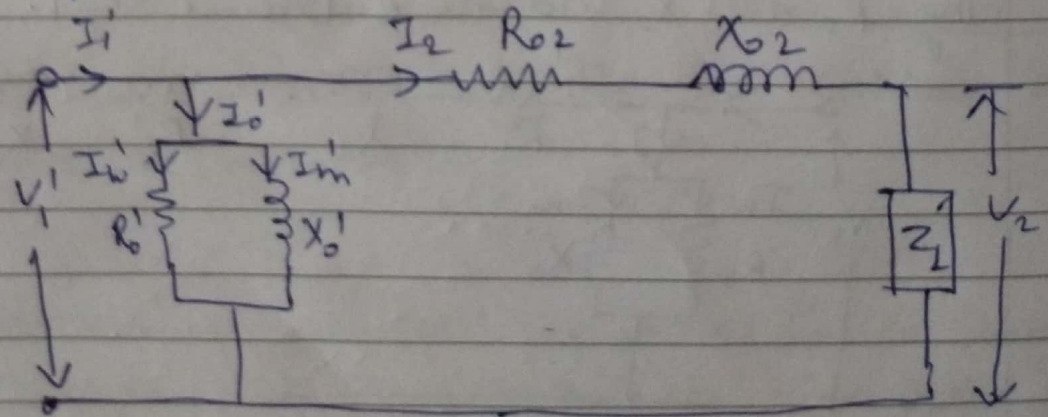 I₁' I₂ R₀₂ X₀₂
I₀'
Iw' Im'
V₁' R₀' X₀' Z₁' V₂